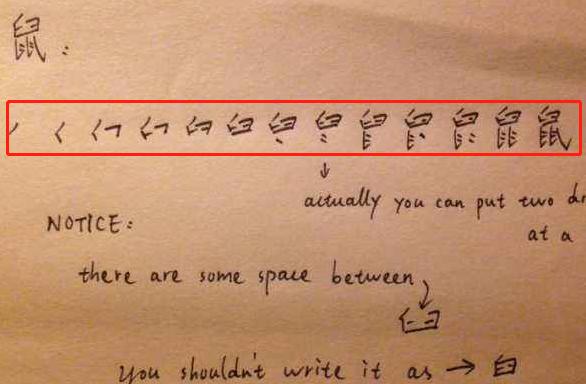 鼠:
actually you can put two
at a
NOTICE:
there are some space between
You shouldn't write it as → 白